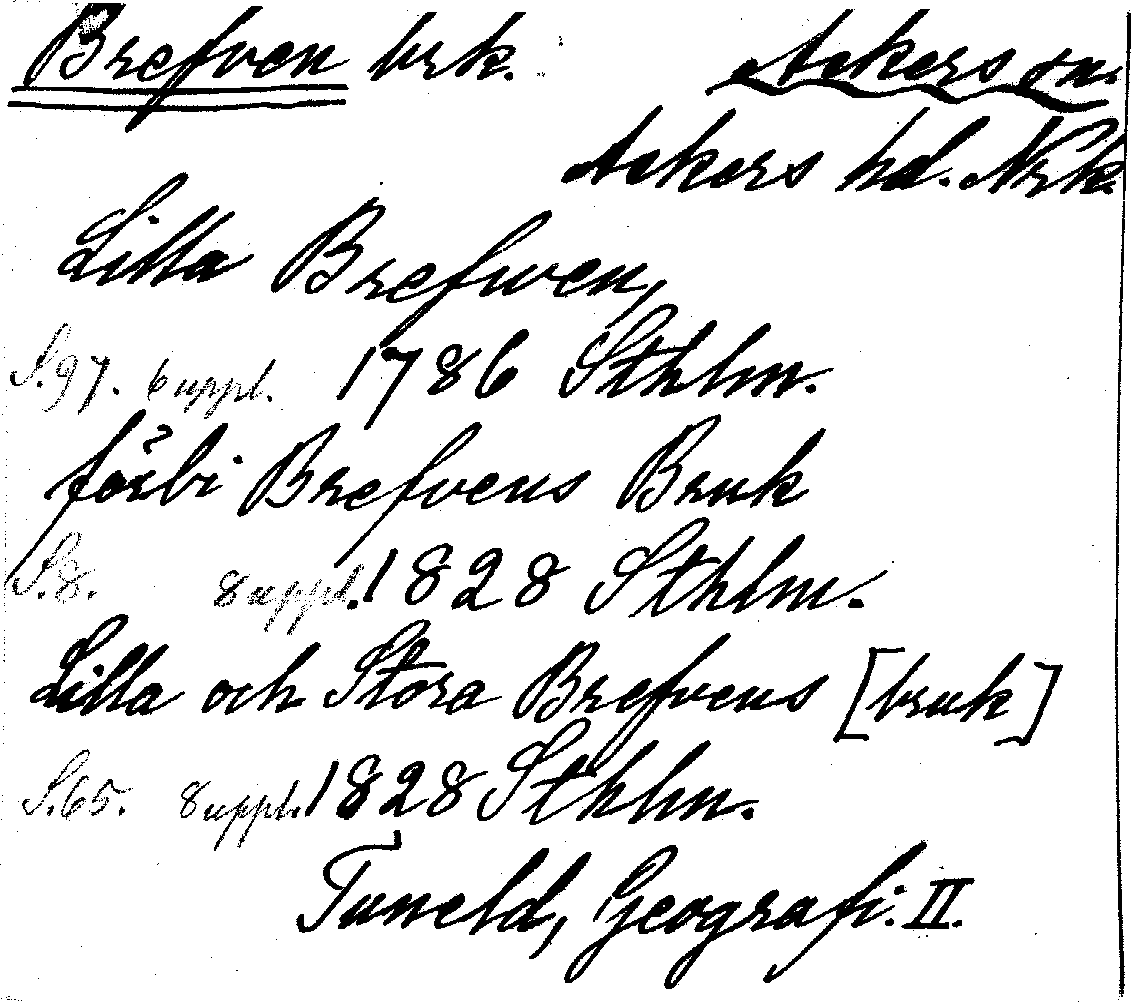 Brefven brk. Askers sn.
Askers hd. Nrk.
Lilla Brefwen,
S. 97. 6 uppl. 1786 Sthlm.
förbi Brefvens Bruk
S. 8. 8 uppl. 1828 Sthlm.
Lilla och Stora Brefvens [bruk]
S. 65. 8 uppl. 1828 Sthlm.
Tuneld, Geografi. II.